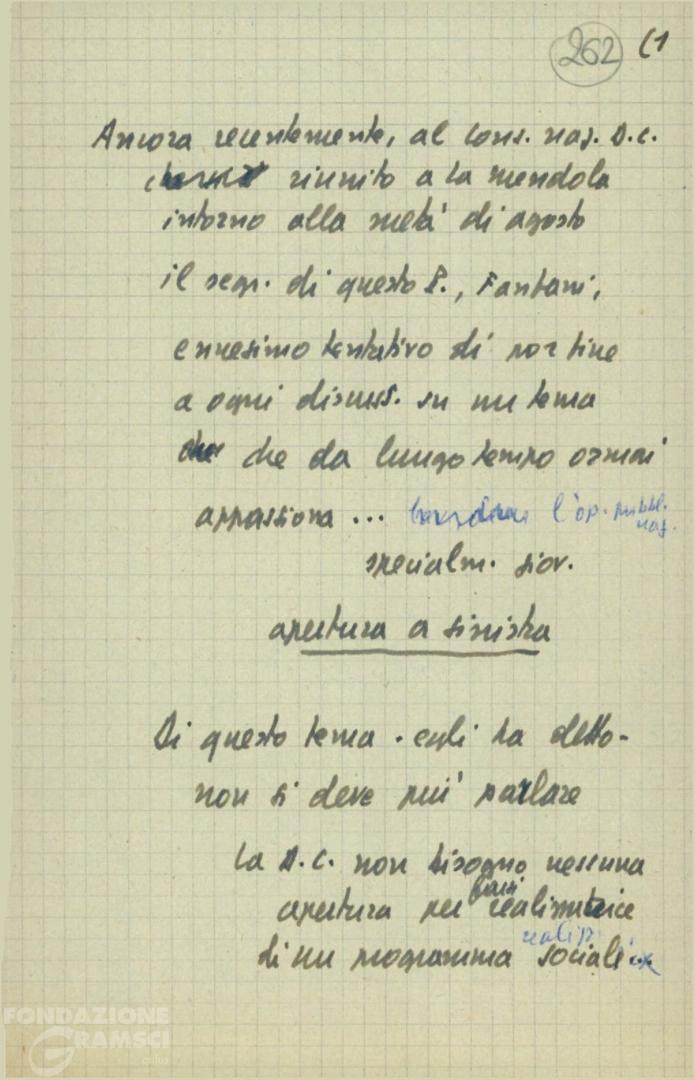 262 (1
Ancora recentemente, al Cons. naz. D.C.
riunito a La Mendola
intorno alla metà di agosto
il segr. di questo P., Fanfani,
ennesimo tentativo di por fine
a ogni discuss. su un tema
che che da lungo tempo ormai
appassiona ... l'op. pubbl.
naz.
specialm. giov.
apertura a sinistra
Di questo tema - egli ha detto -
non si deve più parlare
La D.C. non bisogno nessuna
apertura per farsi realizzatrice
di un programma sociale
FONDAZIONE
GRAMSCI
onlus